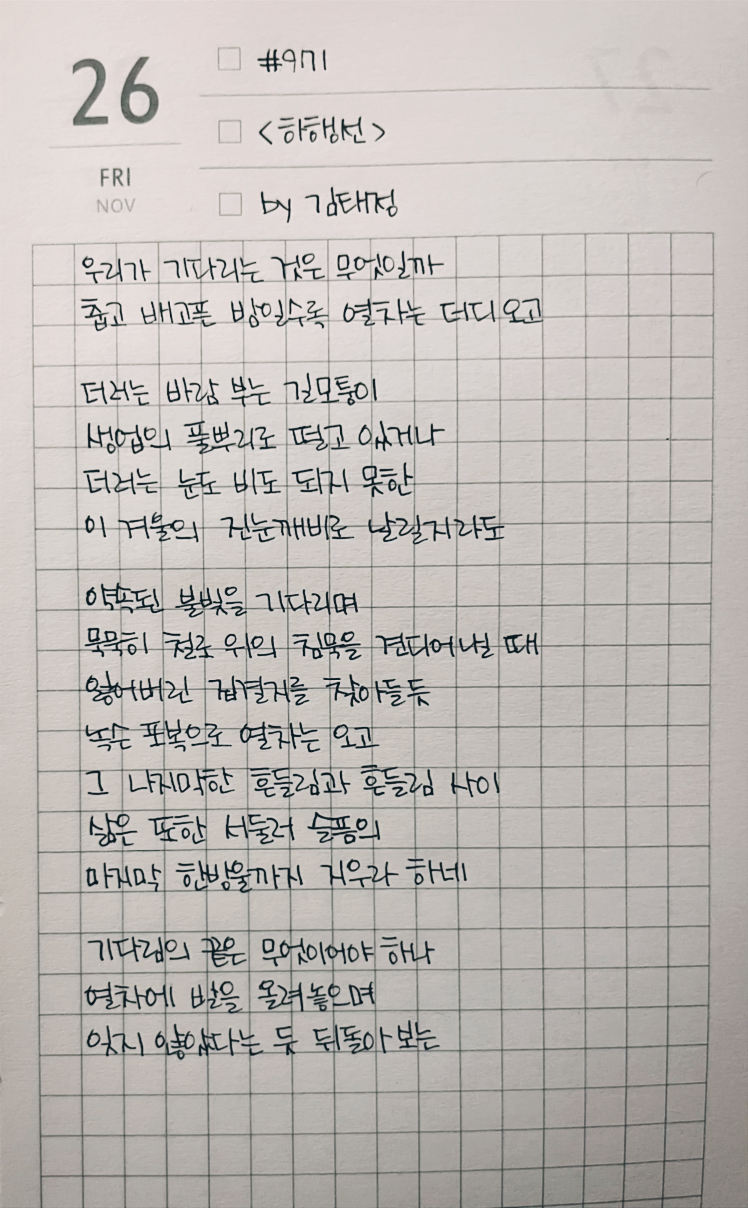 26
FRI
NOV
#971
<하행선>
by 김태정
우리가 기다리는 것은 무엇일까
춥고 배고픈 밤일수록 열차는 더디 오고
더러는 바람 부는 길모퉁이
생업의 풀뿌리로 떨고 있거나
더러는 눈도 비도 되지 못한
이 겨울의 진눈깨비로 날릴지라도
약속된 불빛을 기다리며
묵묵히 철로 위의 침묵을 견디어 낼 때
잃어버린 집결지를 찾아들듯
녹슨 포복으로 열차는 오고
그 나지막한 흔들림과 흔들림 사이
삶은 또한 서둘러 슬픔의
마지막 한방울까지 지우라 하네
기다림의 끝은 무엇이어야 하나
열차에 발을 올려놓으며
잊지 않았다는 듯 뒤돌아 보는